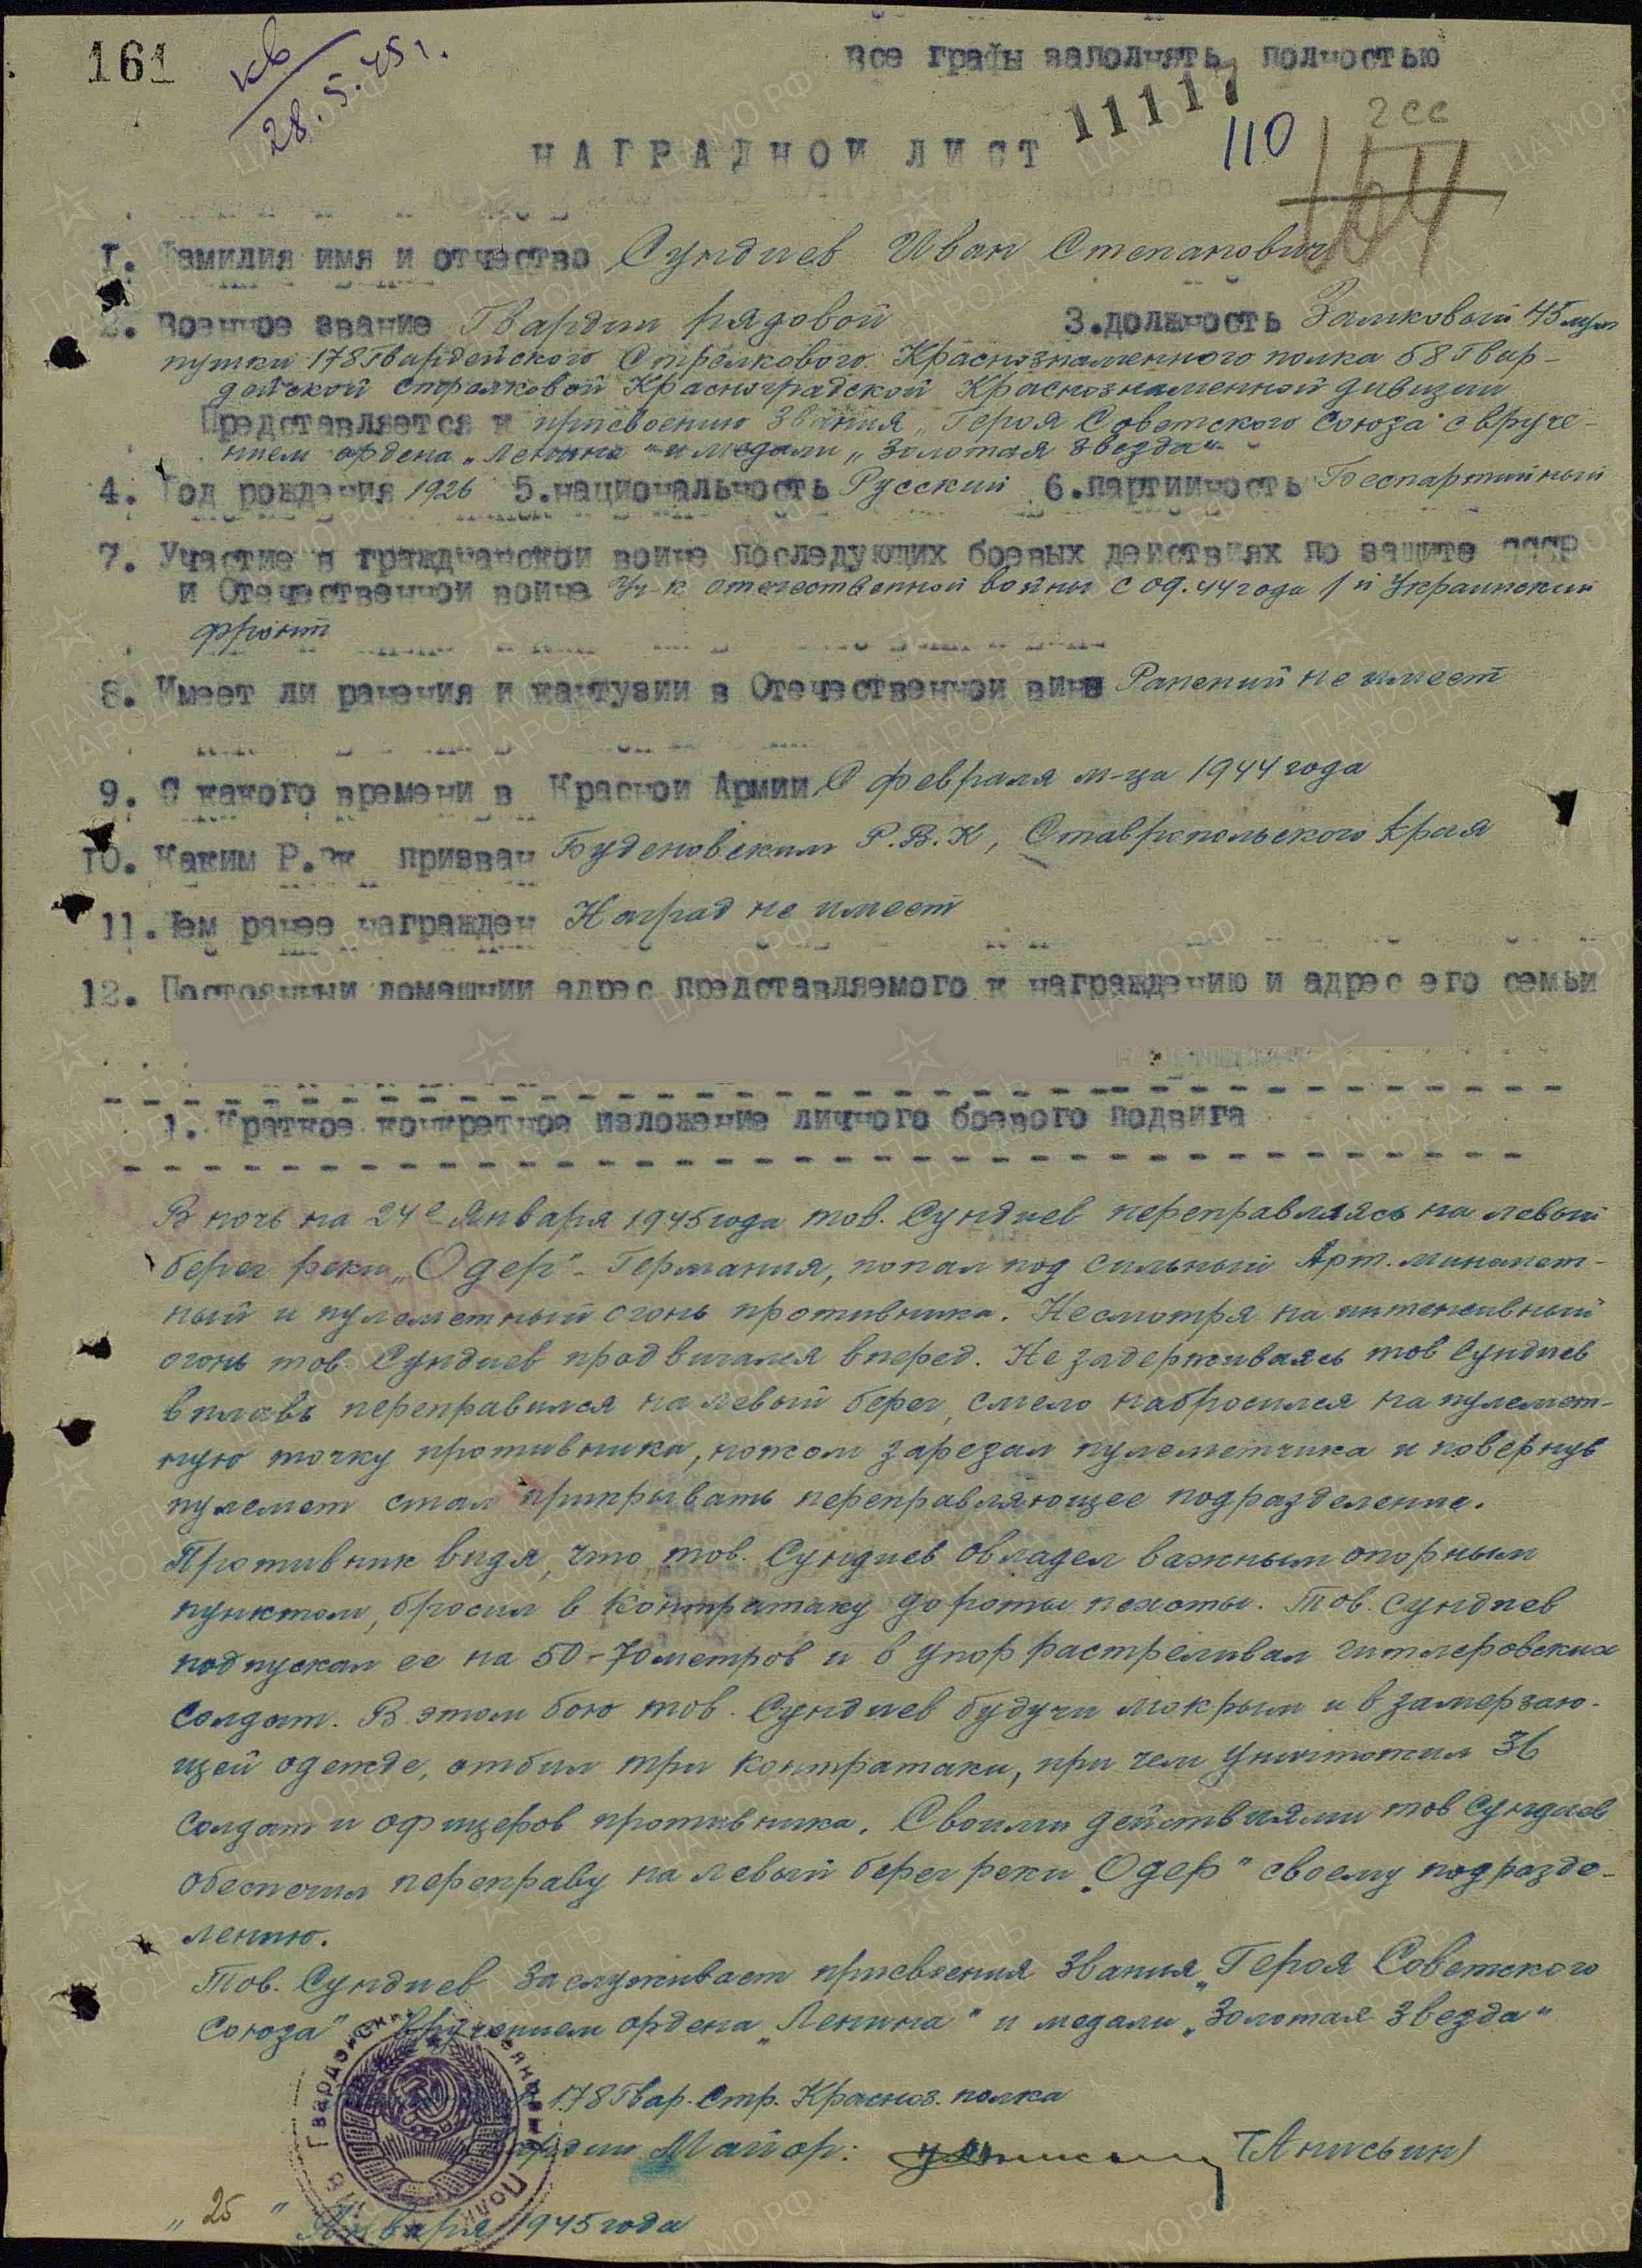 161
кв
28.5.45г.
Все графы заполнять полностью
11117
110
2 сс
164
НАГРАДНОЙ ЛИСТ
1. Фамилия имя и отчество Сундиев Иван Степанович
2. Военное звание Гвардии рядовой 3. должность Замковый 45 м/м
пушки 178 Гвардейского Стрелкового Краснознаменного полка 58 Гвар-
дейской Стрелковой Красноградской Краснознаменной дивизии
Представляется к присвоению звания „Героя Советского Союза" с вруче-
нием ордена „Ленина" и медали „Золотая звезда"
4. Год рождения 1926 5. национальность Русский 6. партийность Беспартийный
7. Участие в гражданской войне последующих боевых действиях по защите СССР
и Отечественной войне Уч-к отечественной войны с 09.44 года 1й Украинский
фронт
8. Имеет ли ранения и контузии в Отечественной вине Ранений не имеет
9. С какого времени в Красной Армии С февраля м-ца 1944 года
10. Каким Р.вк призван Буденовским Р.В.К, Ставропольского края
11. Чем ранее награжден Наград не имеет
12. Постоянный домашний адрес представляемого к награждению и адрес его семьи
1. Краткое конкретное изложение личного боевого подвига
В ночь на 24е января 1945 года тов. Сундиев переправляясь на левый
берег реки „Одер" - Германия, попал под сильный Арт. миномет-
ный и пулеметный огонь противника. Несмотря на интенсивный
огонь тов. Сундиев продвигался вперед. Не задерживаясь тов Сундиев
вплавь переправился на левый берег, смело набросился на пулемет-
ную точку противника, ножом зарезал пулеметчика и повернув
пулемет стал прикрывать переправляющее подразделение.
Противник видя, что тов. Сундиев овладел важным опорным
пунктом, бросил в контратаку до роты пехоты. Тов. Сундиев
подпускал ее на 50-70 метров и в упор растреливал гитлеровских
солдат. В этом бою тов. Сундиев будучи мокрым и в замерзаю-
щей одежде, отбил три контратаки, при чем уничтожил 36
солдат и офицеров противника. Своими действиями тов Сундиев
обеспечил переправу на левый берег реки „Одер" своему подразде-
лению.
Тов. Сундиев заслуживает присвоения звания „Героя Советского
Союза" с вручением ордена „Ленина" и медали „Золотая Звезда"
178 Гвар. Стр. Красноз. полка
Гвардии Майор: (Анисьин)
„25" Января 1945 года